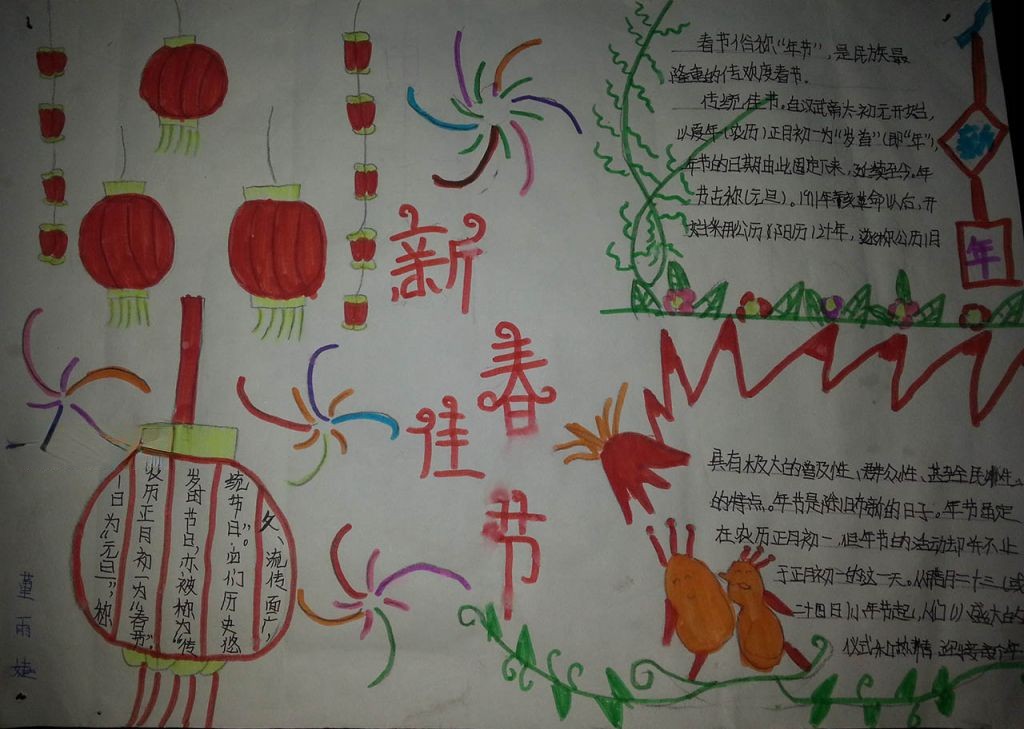 新
春
佳
节
春节俗称“年节”,是民族最
隆重的传欢度春节.
传统佳节。自汉武帝太初元开始,
以夏年(农历)正月初一为“岁首”(即“年”),
年节的日期由此固定下来,延续至今。年
节古称(元旦)。1911年辛亥革命以后,开
始采用公历(阳历)计年,遂称公历1月
年
具有极大的普及性、群众性、甚至全民性
的特点。年节是除旧布新的日子。年节虽定
在农历正月初一,但年节的活动却并不止
于正月初一的这一天。从腊月二十三(或
二十四日)小年节起,人们
仪式和热情,迎接每个年
久、流传面广,
统节日”。由们历史悠
岁时节日,亦被称为“传
农历正月初一为“春节”。
一日为“元旦”,称
董
雨
婕